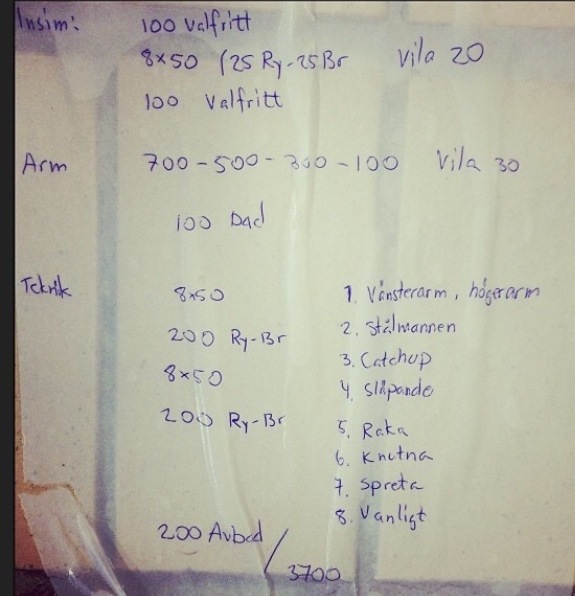 Insim: 100 Valfritt
8x50 (25 Ry-25Br Vila 20
100 Valfritt
Arm 700-500-300-100 Vila 30
100 Bad
Teknik 8x50 1. Vänsterarm, högerarm
200 Ry-Br 2. Stålmannen
8x50 3. Catchup
200 Ry-Br 4. Släpande
5. Raka
6. Knutna
7. Spreta
8. Vanligt
200 Avbad / 3700